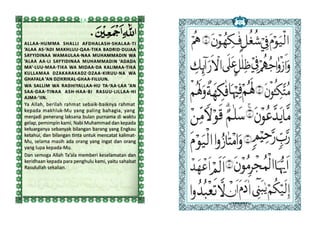 اللهِ أَجْمَعِيْنَ.
ALLAA-HUMMA SHALLI AFDHALASH-SHALAA-TI
'ALAA AS-'ADI MAKHLUU-QAA-TIKA BADRID-DUJAA
SAYYIDINAA WAMAULAA-NAA MUHAMMADIN WA
'ALAA AA-LI SAYYIDINAA MUHAMMADIN 'ADADA
MA'-LUU-MAA-TIKA WA MIDAA-DA KALIMAA-TIKA
KULLAMAA DZAKARAKADZ-DZAA-KIRUU-NA WA
GHAFALA 'AN DZIKRIKAL-GHAA-FILUUN.
WA SALLIM WA RADHIYALLAA-HU TA'AA-LAA 'AN
SAA-DAA-TINAA ASH-HAA-BI RASUU-LILLAA-HI
AJMA-'IIN.
Ya Allah, berilah rahmat sebaik-baiknya rahmat
kepada makhluk-Mu yang paling bahagia, yang
menjadi penerang laksana bulan purnama di waktu
gelap, pemimpin kami, Nabi Muhammad dan kepada
keluarganya sebanyak bilangan barang yang Engkau
ketahui, dan bilangan tinta untuk mencatat kalimat-
Mu, selama masih ada orang yang ingat dan orang
yang lupa kepada-Mu.
Dan semoga Allah Ta'ala memberi keselamatan dan
keridhaan kepada para penghulu kami, yaitu sahabat
Rasulullah sekalian.
الْيَوْمَ فِيْ شُغُلٍ فَاكِهُوْنَ هُمْ
وَأَزْوَاجُهُمْ فِيْ ظِلَالٍ عَلَى الْأَرَائِكِ
مُتَّكِئُوْنَ لَهُمْ فِيْهَا فَاكِهَةٌ وَلَهُمْ
مَا يَدَّعُوْنَ سَلَامٌ قَوْلًا مِنْ
رَبٍّ رَحِيْمٍ وَامْتَازُوا الْيَوْمَ
أَيُّهَا الْمُجْرِمُوْنَ أَلَمْ أَعْهَدْ
إِلَيْكُمْ يٰبَنِيْ آدَمَ أَنْ لَا تَعْبُدُوا